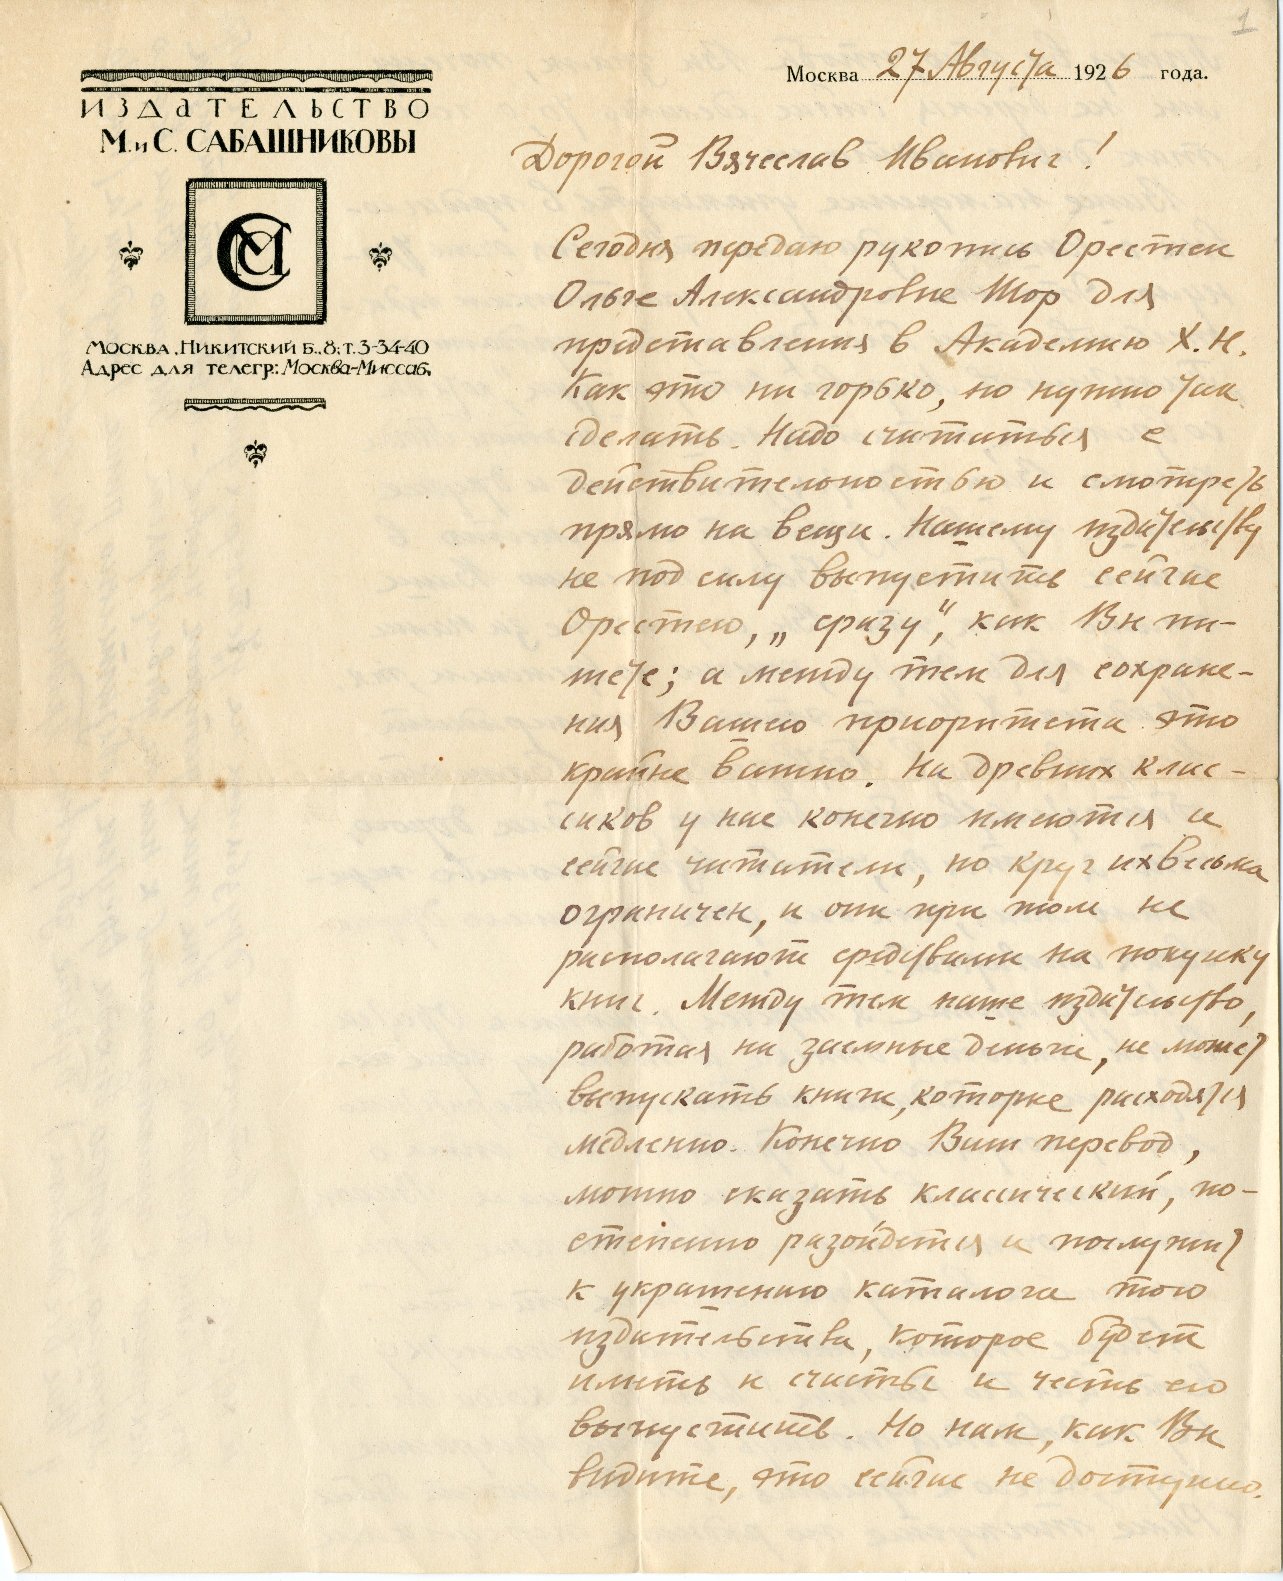 1
Москва 27 Августа 1926 года.
ИЗДАТЕЛЬСТВО
М. и С. САБАШНИКОВЫ
МС
Москва, Никитский Б., 8; т. 3-34-40
Адрес для телегр.: Москва-Миссаб.
Дорогой Вячеслав Иванович!
Сегодня передаю рукопись Орестеи
Ольге Александровне Шор для
представления в Академию Х. Н.
Как это ни горько, но нужно так
сделать. Надо считаться с
действительностью и смотреть
прямо на вещи. Нашему издательству
не под силу выпустить сейчас
Орестею, „сразу", как Вы пи-
шете; а между тем для сохране-
ния Вашего приоритета это
крайне важно. На древних клас-
сиков у нас конечно имеются и
сейчас читатели, но круг их весьма
ограничен, и они при том не
располагают средствами на покупку
книг. Между тем наше издательство,
работая на заемные деньги, не может
выпускать книги, которые расходятся
медленно. Конечно Ваш перевод,
можно сказать классический, по-
степенно разойдется и послужит
к украшению каталога того
издательства, которое будет
иметь и счастье и честь его
выпустить. Но нам, как Вы
видите, это сейчас не доступно.